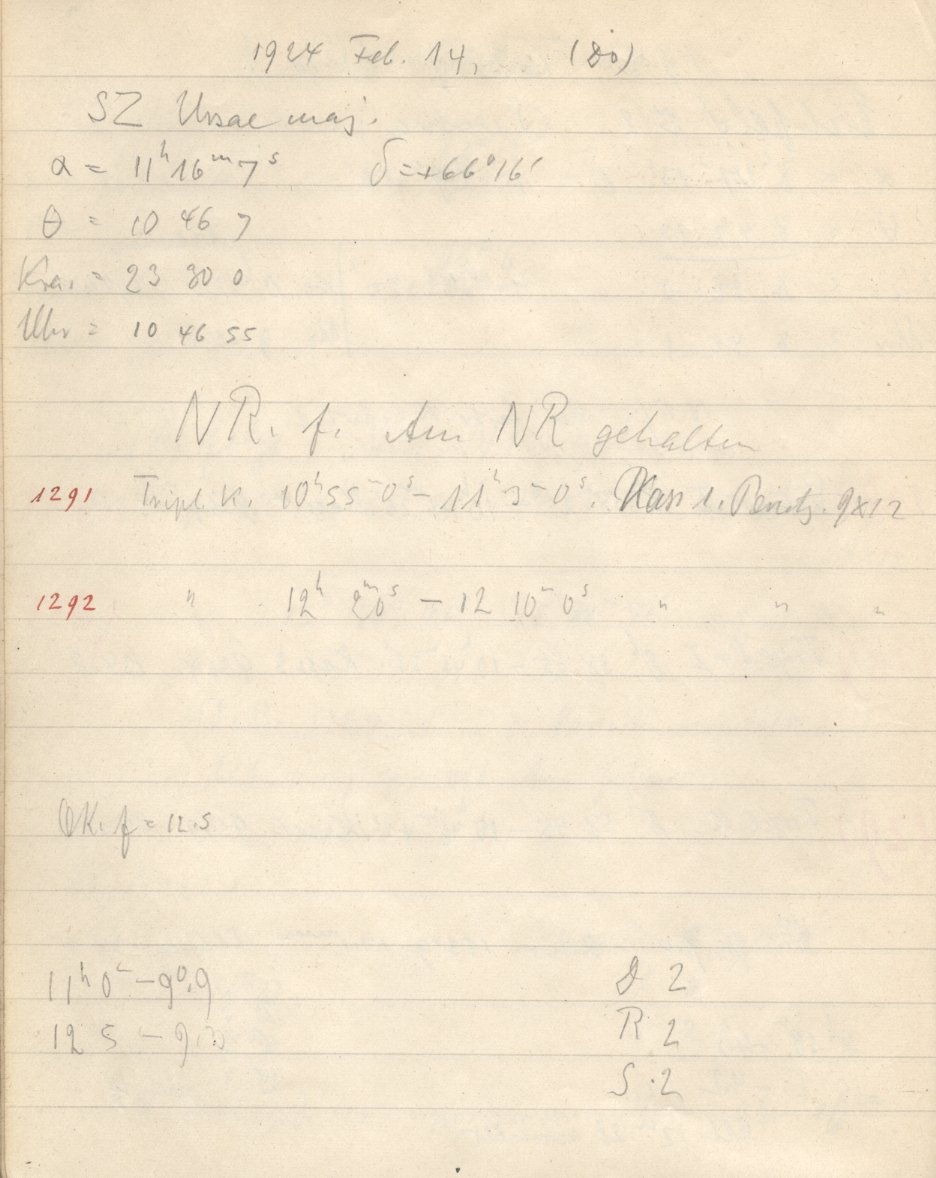 1924 Feb. 14, (80)
SZ Ursae maj.
α = 11ʰ 16ᵐ 7ˢ δ = +66° 16'
θ = 10 46 7
= 23 30 0
Uhr = 10 46 55
NR. f. Am NR gehalten
1291 Tripl. K. 10ʰ 55ᵐ 0ˢ – 11ʰ 3ᵐ 0ˢ. 9x12
1292 " 12ʰ 2ᵐ 0ˢ – 12 10ᵐ 0ˢ " " "
OK. f = 12.5
11ʰ 0ᵐ – 9°.9
12 5 –
J 2
R 2
S. 2